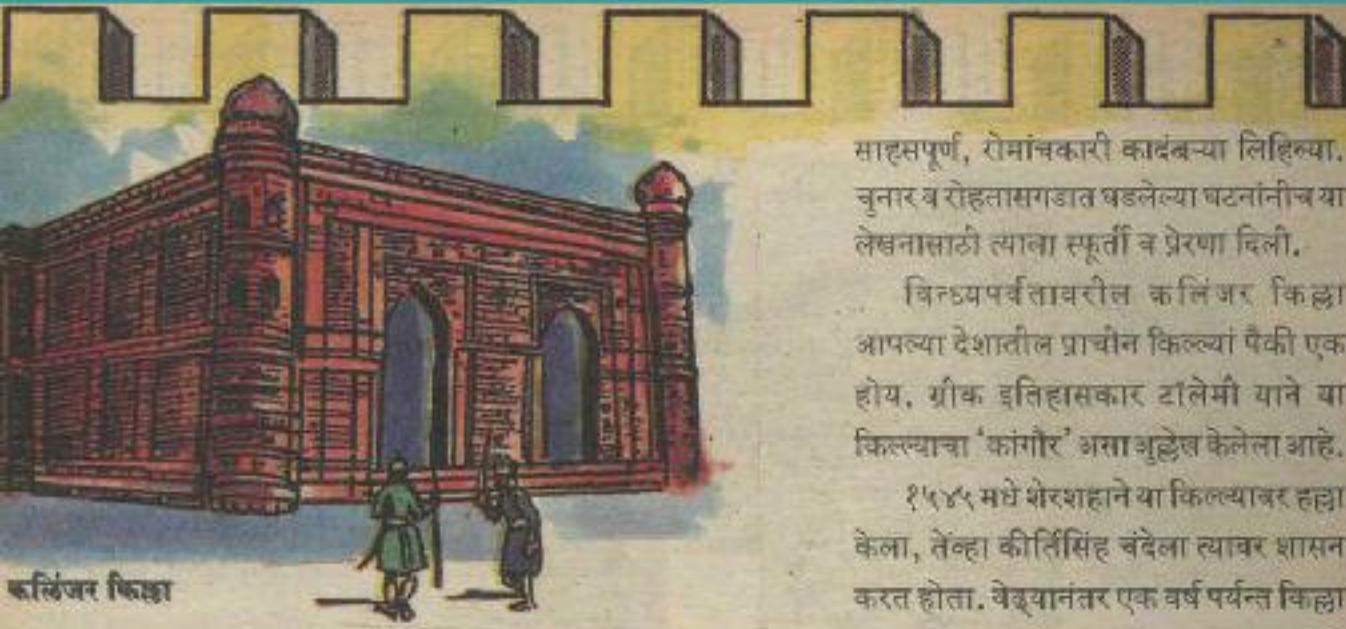 साहसपूर्ण, रोमांचकारी कादंबऱ्या लिहिल्या.
चुनार व रोहतासगडात घडलेल्या घटनांनीच या
लेखनासाठी त्याला स्फूर्ती व प्रेरणा दिली.
विन्ध्यपर्वतावरील कलिंजर किल्ला
आपल्या देशातील प्राचीन किल्ल्यां पैकी एक
होय. ग्रीक इतिहासकार टॉलेमी याने या
किल्ल्याचा 'कांगौर' असा अुल्लेख केलेला आहे.
१५४५ मधे शेरशहाने या किल्ल्यावर हल्ला
केला, तेंव्हा कीर्तिसिंह चंदेला त्यावर शासन
करत होता. वेढ्यानंतर एक वर्ष पर्यन्त किल्ला
कलिंजर किल्ला